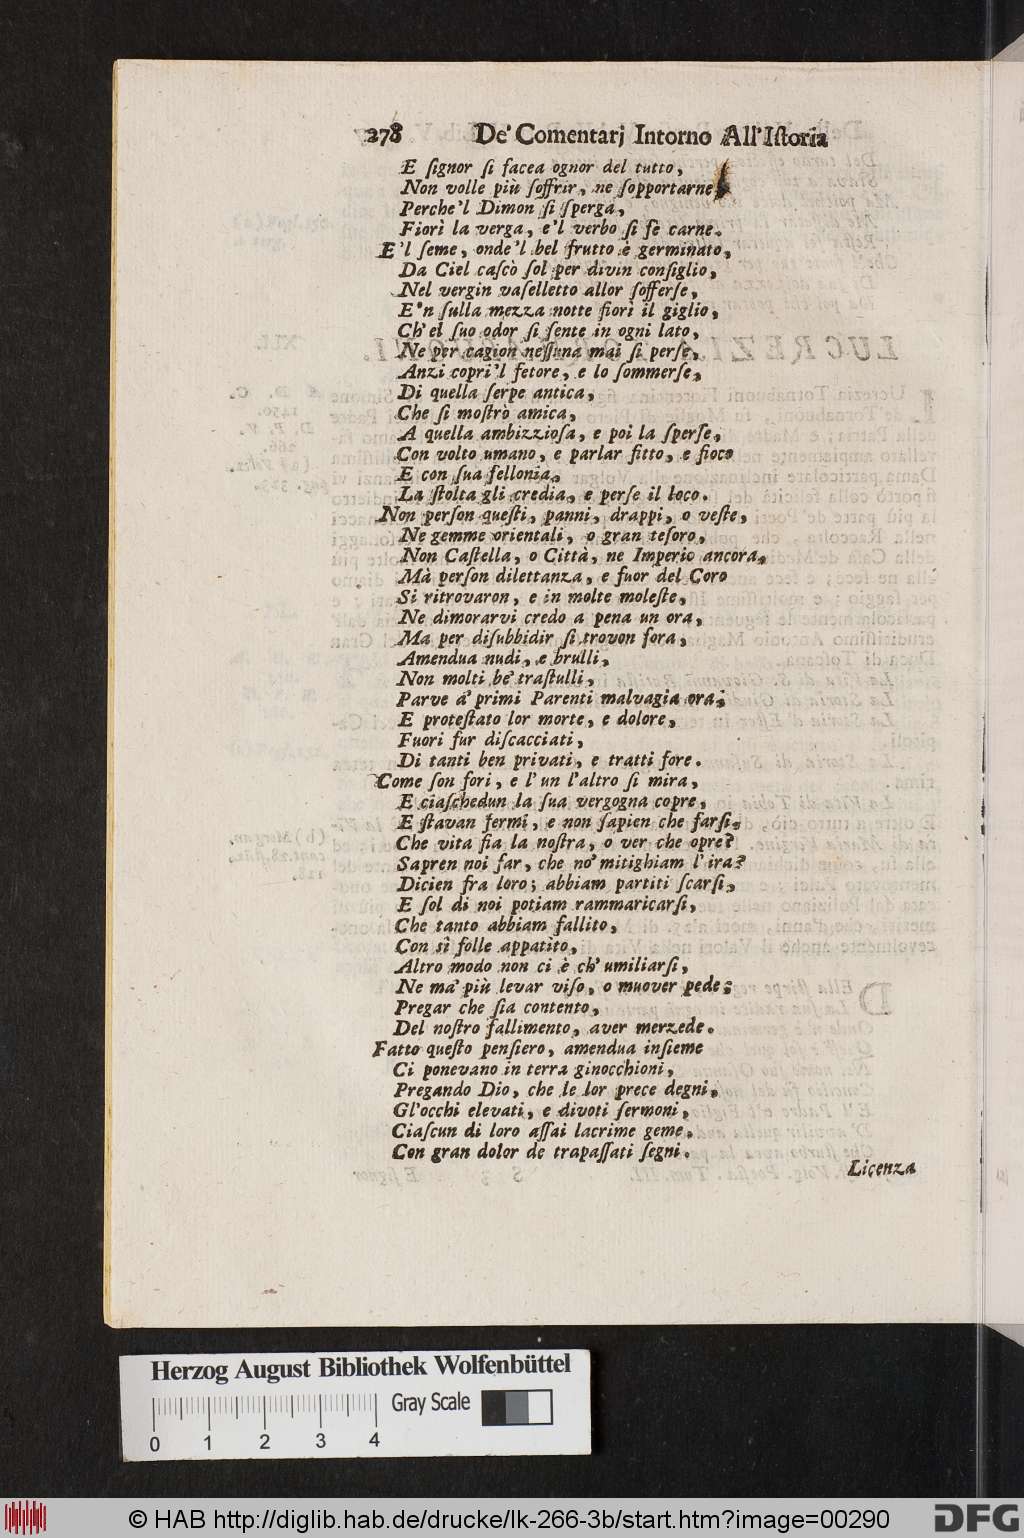 278 De' Comentarj Intorno All'Iſtoria
E ſignor ſi facea ognor del tutto,
Non volle più ſoffrir, ne ſopportarne,
Perche'l Dimon ſi ſperga,
Fiorì la verga, e'l verbo ſi fe carne.
E'l ſeme, onde'l bel frutto è germinato,
Da Ciel caſcò ſol per divin conſiglio,
Nel vergin vaſelletto allor ſofferſe,
E'n ſulla mezza notte fiorì il giglio,
Ch'el ſuo odor ſi ſente in ogni lato,
Ne per cagion neſſuna mai ſi perſe,
Anzi coprì'l fetore, e lo ſommerſe,
Di quella ſerpe antica,
Che ſi moſtrò amica,
A quella ambizzioſa, e poi la ſperſe,
Con volto umano, e parlar fitto, e fioco
E con ſua fellonia,
La ſtolta gli credia, e perſe il loco.
Non perſon queſti, panni, drappi, o veſte,
Ne gemme orientali, o gran teſoro,
Non Caſtella, o Città, ne Imperio ancora,
Mà perſon dilettanza, e fuor del Coro
Si ritrovaron, e in molte moleſte,
Ne dimorarvi credo a pena un ora,
Ma per diſubbidir ſi trovon fora,
Amendua nudi, e brulli,
Non molti be' traſtulli,
Parve a' primi Parenti malvagia ora;
E proteſtato lor morte, e dolore,
Fuori fur diſcacciati,
Di tanti ben privati, e tratti fore.
Come ſon fori, e l'un l'altro ſi mira,
E ciaſchedun la ſua vergogna copre,
E ſtavan fermi, e non ſapien che farſi,
Che vita fia la noſtra, o ver che opre?
Sapren noi far, che no' mitighiam l'ira?
Dicien fra loro; abbiam partiti ſcarſi,
E ſol di noi potiam rammaricarſi,
Che tanto abbiam fallito,
Con sì folle appatito,
Altro modo non ci è ch'umiliarſi,
Ne ma' più levar viſo, o muover pede;
Pregar che ſia contento,
Del noſtro fallimento, aver merzede.
Fatto queſto penſiero, amendua inſieme
Ci ponevano in terra ginocchioni,
Pregando Dio, che le lor prece degni,
Gl'occhi elevati, e divoti ſermoni,
Ciaſcun di loro aſſai lacrime geme.
Con gran dolor de trapaſſati ſegni.
Licenza
Herzog August Bibliothek Wolfenbüttel
Gray Scale
0 1 2 3 4
© HAB http://diglib.hab.de/drucke/lk-266-3b/start.htm?image=00290
DFG